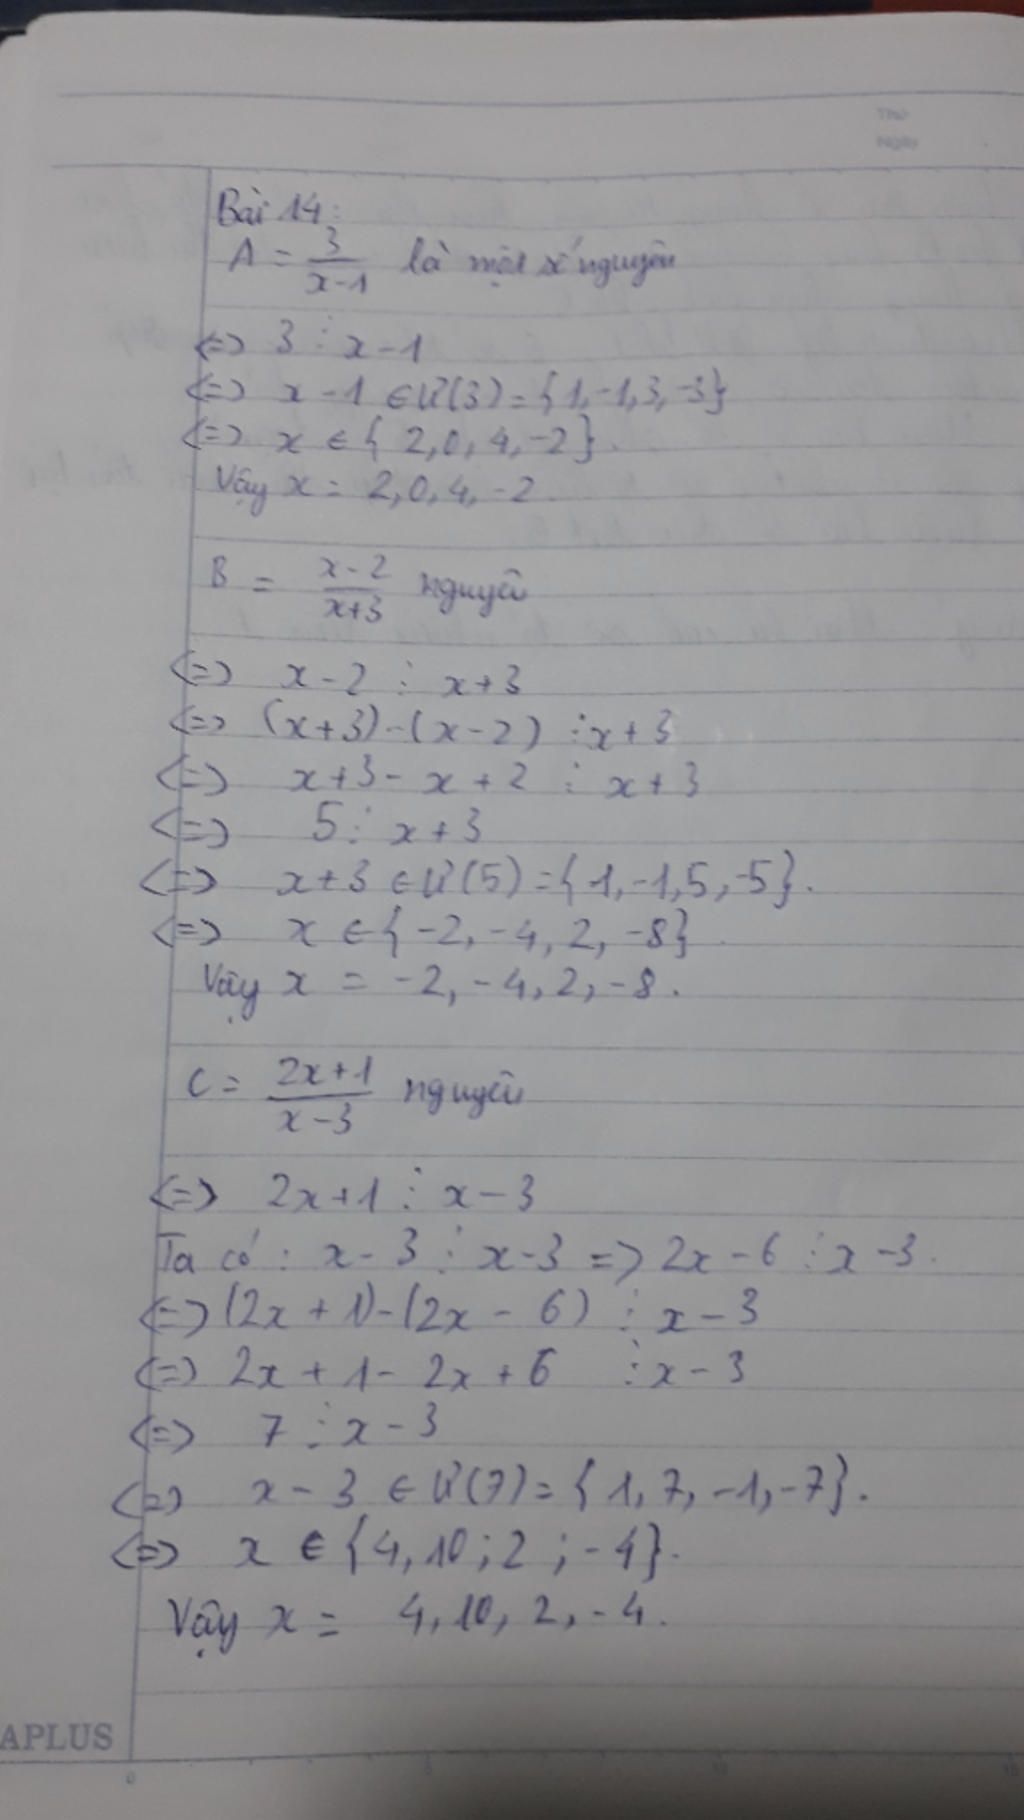 Thứ
Ngày
Bài 14:
A = 3/(x-1) là một số nguyên
<=> 3 ⋮ x-1
<=> x-1 ∈ Ư(3) = {1,-1,3,-3}
<=> x ∈ {2,0,4,-2}.
Vậy x = 2,0,4,-2
B = (x-2)/(x+3) nguyên
<=> x-2 ⋮ x+3
<=> (x+3)-(x-2) ⋮ x+3
<=> x+3-x+2 ⋮ x+3
<=> 5 ⋮ x+3
<=> x+3 ∈ Ư(5) = {1,-1,5,-5}.
<=> x ∈ {-2,-4,2,-8}.
Vậy x = -2,-4,2,-8.
C = (2x+1)/(x-3) nguyên
<=> 2x+1 ⋮ x-3
Ta có: x-3 ⋮ x-3 => 2x-6 ⋮ x-3.
<=> (2x+1)-(2x-6) ⋮ x-3
<=> 2x+1-2x+6 ⋮ x-3
<=> 7 ⋮ x-3
<=> x-3 ∈ Ư(7) = {1,7,-1,-7}.
<=> x ∈ {4,10;2;-4}.
Vậy x = 4,10,2,-4.
APLUS
0 5 10 15